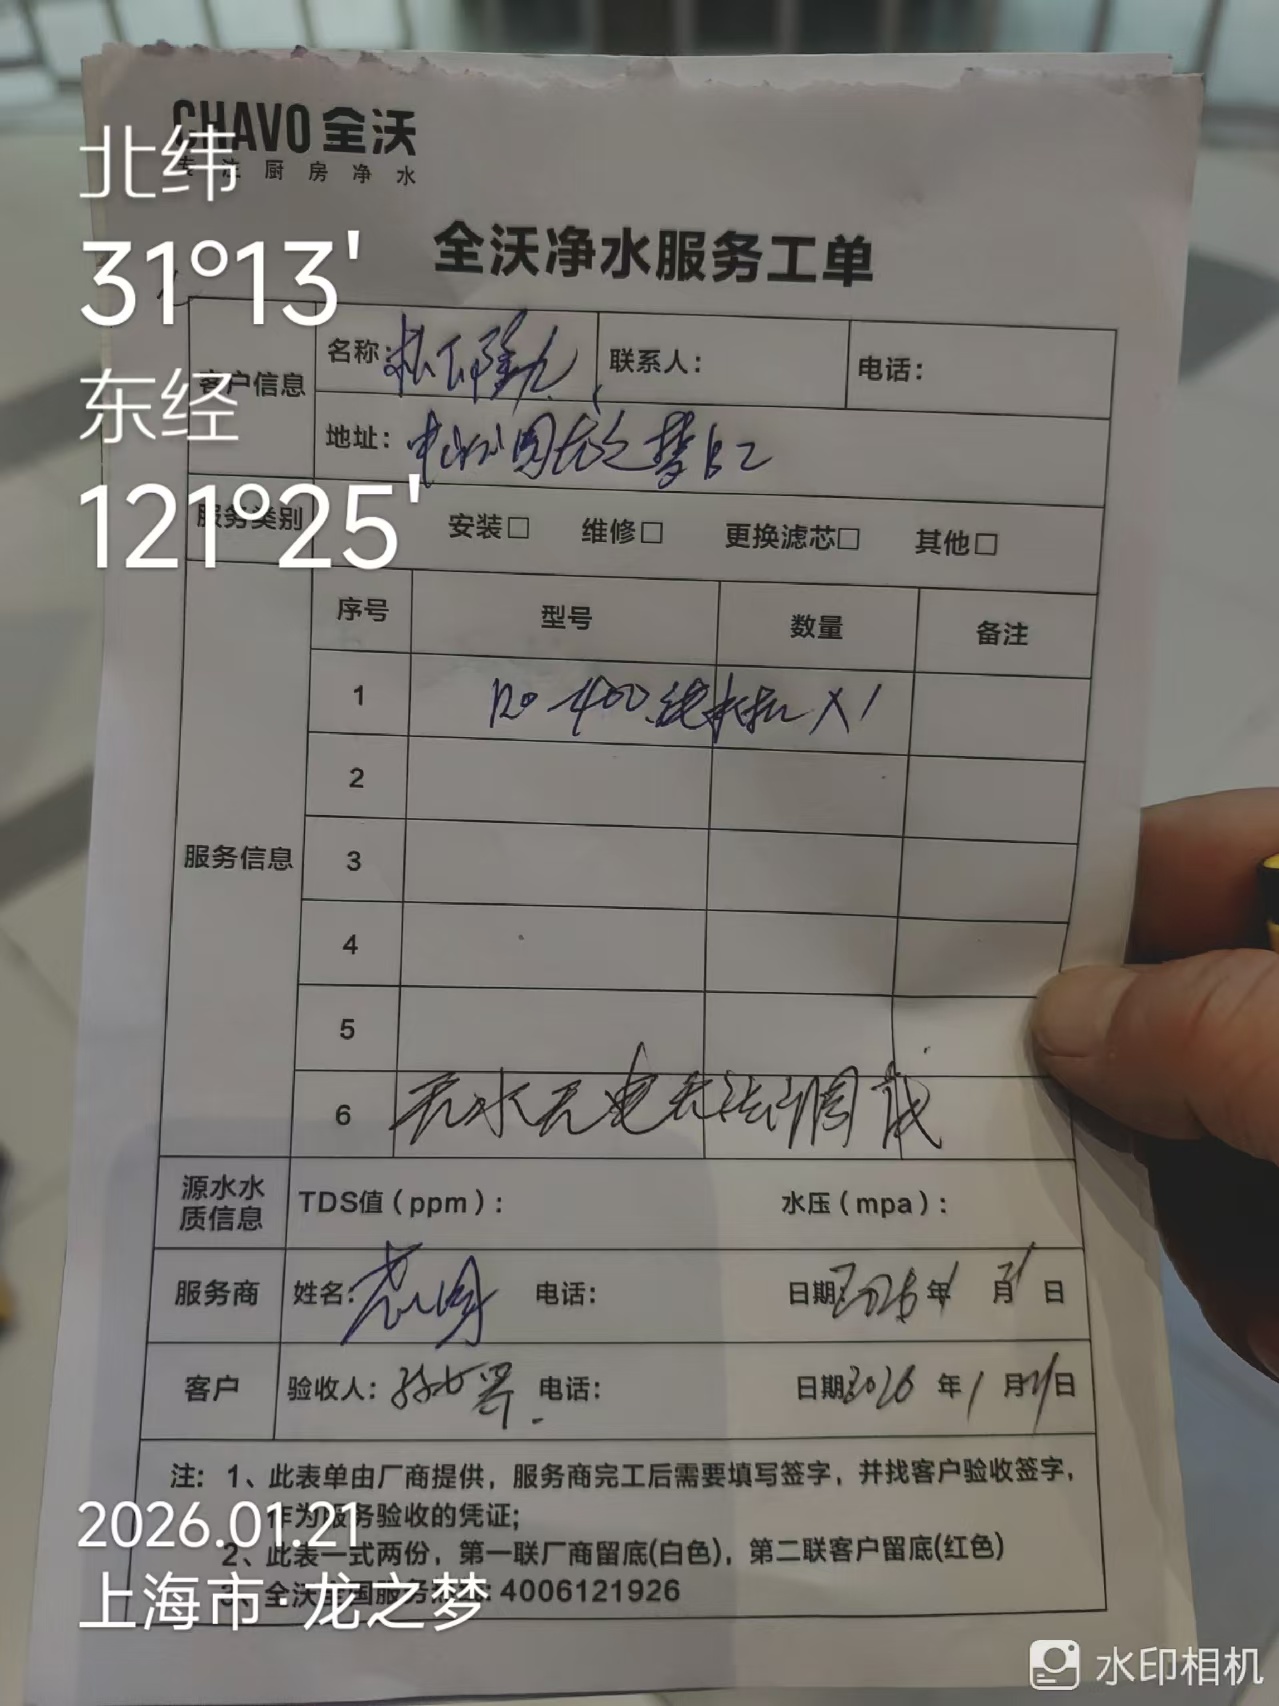 CHAVO 全沃
专注厨房净水
全沃净水服务工单
客户信息
名称: 松下隆九
联系人:
电话:
地址: 中山公园龙之梦B2
服务类别
安装□ 维修□ 更换滤芯□ 其他□
服务信息
序号 型号 数量 备注
1 RO-400纯水机 X1
2
3
4
5
6 无水无电无法调试
源水水质信息
TDS值(ppm): 水压(mpa):
服务商 姓名: 电话: 日期2026年1月21日
客户 验收人: 电话: 日期2026年1月21日
注: 1、此表单由厂商提供，服务商完工后需要填写签字，并找客户验收签字，
作为服务验收的凭证;
2、此表一式两份，第一联厂商留底(白色)，第二联客户留底(红色)
3、全沃全国服务热线: 4006121926
北纬
31°13'
东经
121°25'
2026.01.21
上海市·龙之梦
水印相机